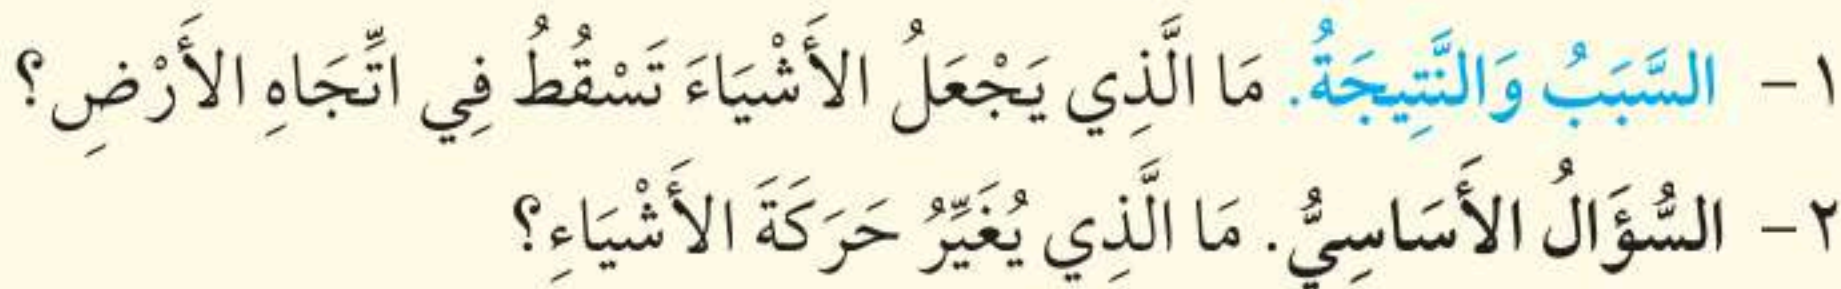 ١ - السَّبَبُ وَالنَّتِيجَةُ. مَا الَّذِي يَجْعَلُ الأَشْيَاءَ تَسْقُطُ فِي اتِّجَاهِ الأَرْضِ؟
٢ - السُّؤَالُ الأَسَاسِيُّ. مَا الَّذِي يُغَيِّرُ حَرَكَةَ الأَشْيَاءِ؟